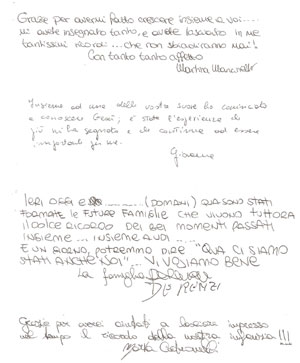 Grazie per avermi fatto crescere insieme a voi....
mi avete insegnato tanto, e avete lasciato in me
tantissimi ricordi... che non sbiadiranno mai!
Con tanto tanto affetto
Martina
Insieme ad una delle vostre suore ho cominciato
a conoscere Gesù; è stata l'esperienza che
più mi ha segnato e che continua ad essere
importante per me.
Giovanna
IERI, OGGI E ......... (DOMANI) QUA SONO STATI
FORMATE LE FUTURE FAMIGLIE CHE VIVONO TUTTORA
IL DOLCE RICORDO DEI BEI MOMENTI PASSATI
INSIEME ... INSIEME A VOI ......
E UN GIORNO, POTREMMO DIRE "QUA CI SIAMO
STATI ANCHE NOI"... VI VOGLIAMO BENE
La famiglia
DE RENZI
Grazie per averci aiutati a lasciare impresso
nel tempo il ricordo della nostra infanzia!!!